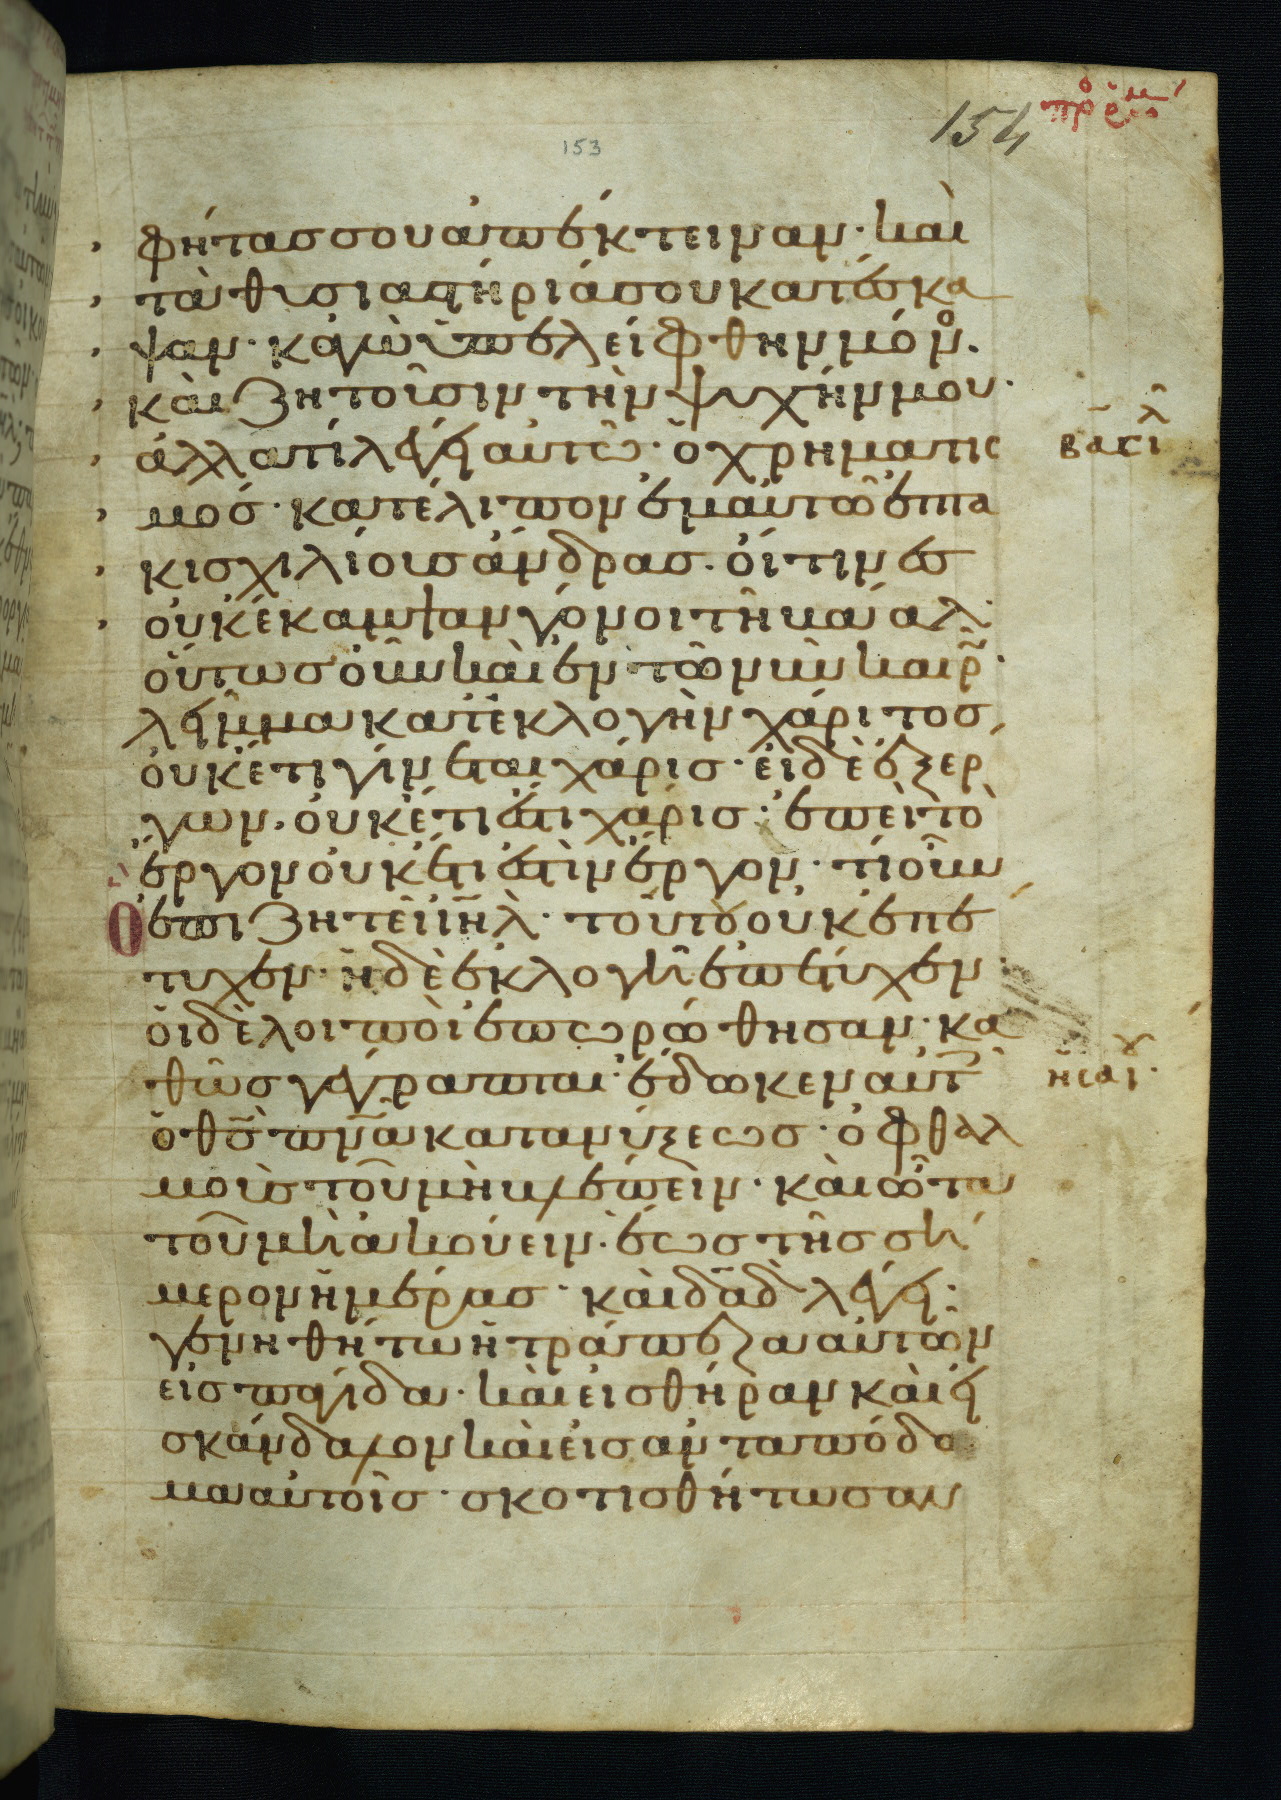 πρ ρωμ
154
153
φήτας σου ἀπέκτειναν· καὶ
τὰ θυσιαστήριά σου κατέσκα
ψαν· κἀγὼ ὑπελείφθην μόνο.
καὶ ζητοῦσιν τὴν ψυχήν μου·
ἀλλὰ τί λέγει αὐτῶ· ὁ χρηματισ
βασιλ
μός· κατέλιπον ἐμαυτῶ ἑπτα
κισχιλίους ἄνδρας· οἵτινες
οὐκ ἔκαμψαν γόνυ τῆ βάαλ·
οὕτως οὖν καὶ ἐν τῶ νῦν καιρ·
λῆμμα κατ ἐκλογὴν χάριτος
οὐκέτι γίνεται χάρις· εἰ δὲ ἐξ ερ
γων· οὐκέτι ἐστι χάρις· ἐπεὶ τὸ
ἔργον οὐκέτι ἐστὶν ἔργον· τί οὖν
Ὃ ἐπιζητεῖ ἰηλ· τοῦτο οὐκ ἐπε
τυχεν· ἡ δὲ ἐκλογὴ ἐπέτυχεν·
οἱ δὲ λοιποὶ ἐπωρώθησαν· κα
θὼς γέγραπται· ἔδωκεν αὐτ
ἡσαι·
ὁ θς πνα κατανύξεως· ὀφθαλ
μοὺς τοῦ μὴ βλέπειν· καὶ ὦτα
τοῦ μὴ ἀκούειν· ἕως τῆς σή
μερον ἡμέρας· καὶ δαδ λέγει:
γενηθήτω ἡ τράπεζα αὐτῶν
εἰς παγίδα· καὶ εἰς θήραν καὶ εἰ
σκάνδαλον καὶ εἰς ἀνταπόδο
μα αὐτοῖς· σκοτισθήτωσαν